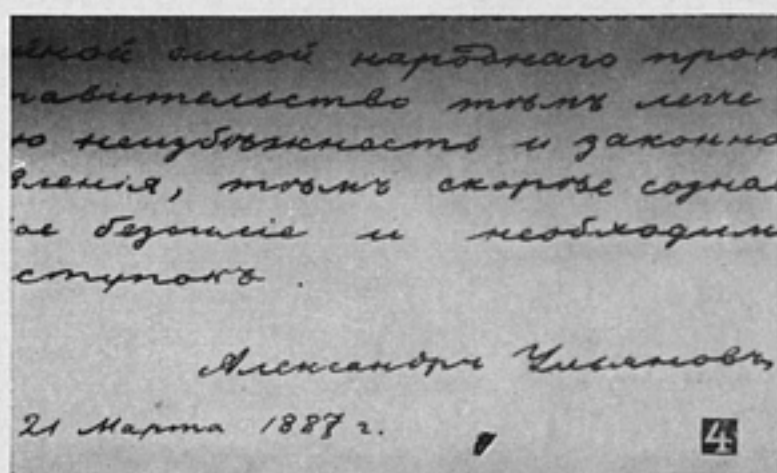 йной силой народнаго прот
равительство тѣмъ легче
ю неизбѣжность и законно
вленія, тѣмъ скорѣе созна
ое безсиліе и необходим
ступокъ.
Александръ Ульяновъ,
21 Марта 1887 г.
4